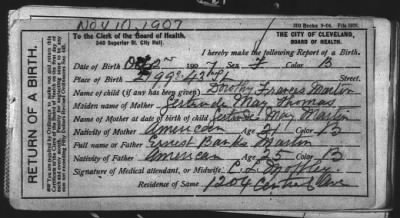 NOV 10, 1907
To the Clerk of the Board of Health.
THE CITY OF CLEVELAND,
BOARD OF HEALTH.
I hereby make the following Report of a Birth.
RETURN OF A BIRTH.
Date of Birth Oct 1907 Sex F Color B
Place of Birth Street.
Name of child (if any has been given) Dorothy Frances Martin
Maiden name of Mother Gertrude May Thomas
Name of Mother at date of birth of child Gertrude May Martin
Nativity of Mother American Age 21 Color B
Full name of Father Ernest Banks Martin
Nativity of Father American Age 25 Color B
Signature of Medical attendant, or Midwife
Residence of Same 1204 Central Ave